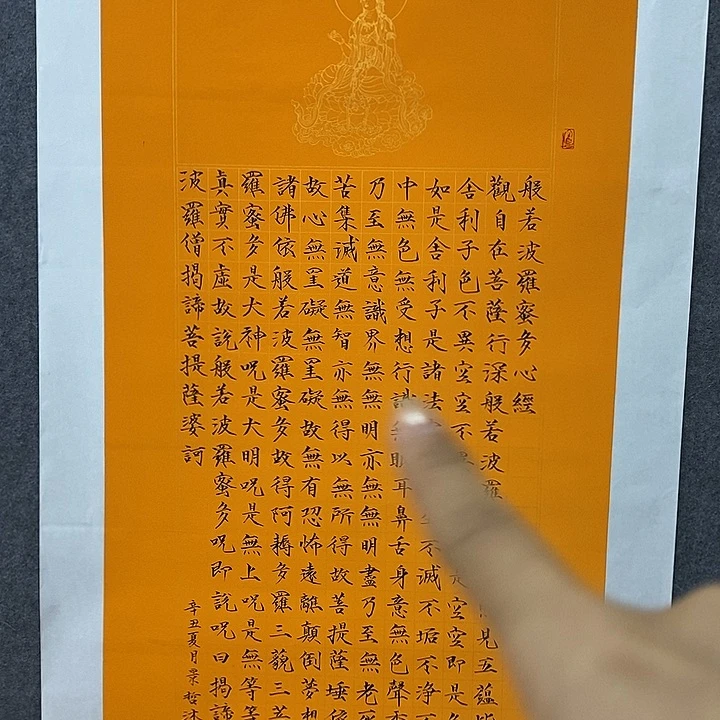 般若波羅蜜多心經
觀自在菩薩行深般若波羅見五蘊皆
舍利子色不異空空不是空空即是色
如是舍利子是諸法不滅不垢不淨不
中無色無受想行識無眼耳鼻舌身意無色聲香
乃至無意識界無無明亦無無明盡乃至無老死
苦集滅道無智亦無得以無所得故菩提薩埵依
故心無罣礙無罣礙故無有恐怖遠離顛倒夢想
諸佛依般若波羅蜜多故得阿耨多羅三藐三菩
羅蜜多是大神呪是大明呪是無上呪是無等等
真實不虛故說般若波羅蜜多呪即說呪曰揭諦
波羅僧揭諦菩提薩婆訶
辛丑夏月景哲沐